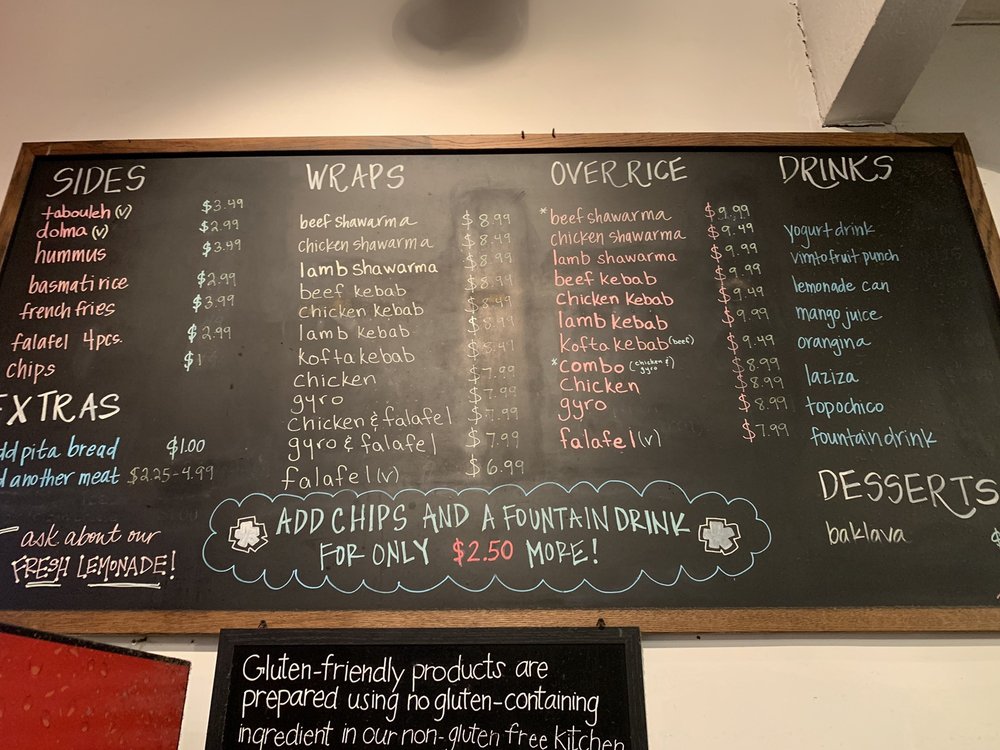 SIDES
tabouleh (v) $3.49
dolma (v) $2.99
hummus $3.49
basmati rice $2.99
french fries $3.99
falafel 4pcs. $2.99
chips $1
EXTRAS
add pita bread $1.00
add another meat $2.25-4.99
ask about our
FRESH LEMONADE!
WRAPS
beef shawarma $8.99
chicken shawarma $8.49
lamb shawarma $8.99
beef kebab $8.99
chicken kebab $8.49
lamb kebab $8.99
kofta kebab $8.49
chicken $7.99
gyro $7.99
chicken & falafel $7.99
gyro & falafel $7.99
falafel (v) $6.99
OVER RICE
*beef shawarma $9.99
chicken shawarma $9.49
lamb shawarma $9.99
beef kebab $9.99
chicken kebab $9.49
lamb kebab $9.99
kofta kebab (beef) $9.49
*combo (chicken & gyro) $8.99
chicken $8.99
gyro $8.99
falafel (v) $7.99
DRINKS
yogurt drink
vimto fruit punch
lemonade can
mango juice
orangina
laziza
topochico
fountain drink
DESSERTS
baklava $
ADD CHIPS AND A FOUNTAIN DRINK
FOR ONLY $2.50 MORE!
Gluten-friendly products are
prepared using no gluten-containing
ingredient in our non-gluten free kitchen